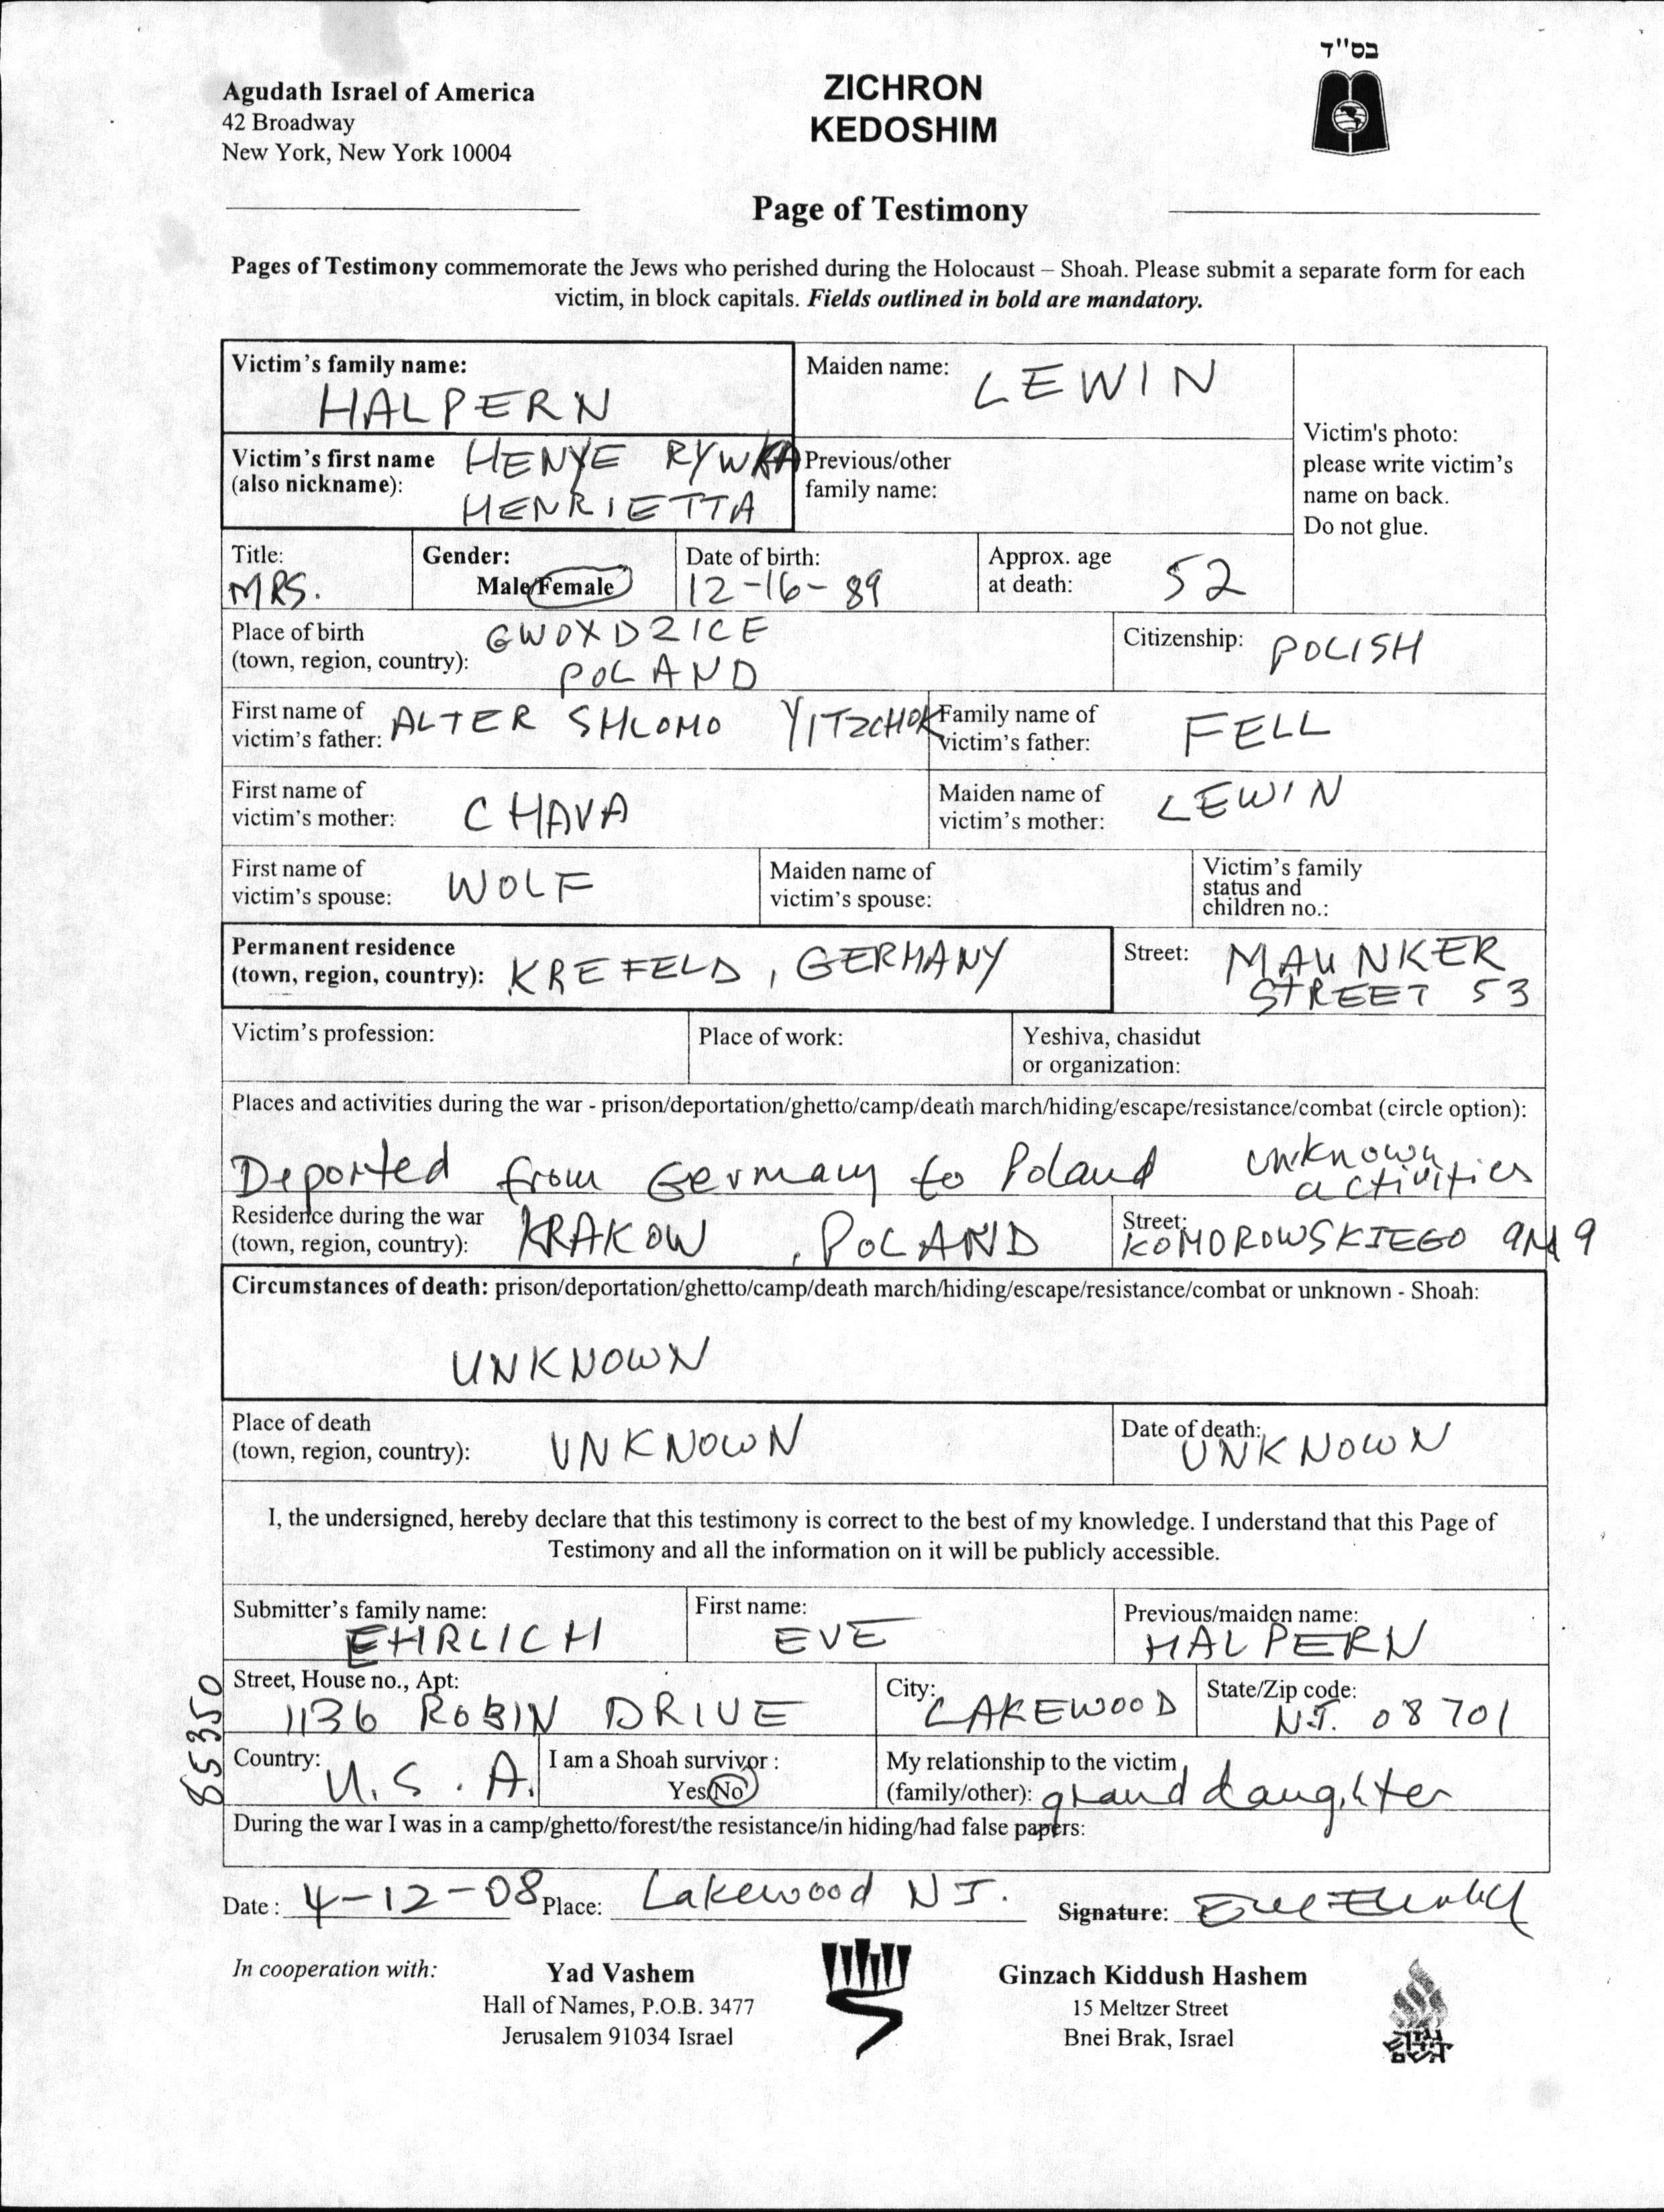 בס"ד
Agudath Israel of America
42 Broadway
New York, New York 10004
ZICHRON
KEDOSHIM
Page of Testimony
Pages of Testimony commemorate the Jews who perished during the Holocaust – Shoah. Please submit a separate form for each
victim, in block capitals. Fields outlined in bold are mandatory.
Victim's family name:
HALPERN
Maiden name: LEWIN
Victim's photo:
please write victim's
name on back.
Do not glue.
Victim's first name
(also nickname):
HENYE RYWKA
HENRIETTA
Previous/other
family name:
Title:
MRS.
Gender:
Male/Female
Date of birth:
12-16-89
Approx. age
at death: 52
Place of birth
(town, region, country):
GWOXDZICE
POLAND
Citizenship: POLISH
First name of
victim's father: ALTER SHLOMO YITZCHOK
Family name of
victim's father: FELL
First name of
victim's mother: CHAVA
Maiden name of
victim's mother: LEWIN
First name of
victim's spouse: WOLF
Maiden name of
victim's spouse:
Victim's family
status and
children no.:
Permanent residence
(town, region, country): KREFELD, GERMANY
Street: MAUNKER
STREET 53
Victim's profession:
Place of work:
Yeshiva, chasidut
or organization:
Places and activities during the war - prison/deportation/ghetto/camp/death march/hiding/escape/resistance/combat (circle option):
Deported from Germany to Poland unknown
activities
Residence during the war
(town, region, country): KRAKOW, POLAND
Street:
KOMOROWSKIEGO 9M 9
Circumstances of death: prison/deportation/ghetto/camp/death march/hiding/escape/resistance/combat or unknown - Shoah:
UNKNOWN
Place of death
(town, region, country): UNKNOWN
Date of death:
UNKNOWN
I, the undersigned, hereby declare that this testimony is correct to the best of my knowledge. I understand that this Page of
Testimony and all the information on it will be publicly accessible.
Submitter's family name:
EHRLICH
First name:
EVE
Previous/maiden name:
HALPERN
Street, House no., Apt:
1136 ROBIN DRIVE
City:
LAKEWOOD
State/Zip code:
N.J. 08701
85350
Country: U.S.A.
I am a Shoah survivor :
Yes/No
My relationship to the victim
(family/other): granddaughter
During the war I was in a camp/ghetto/forest/the resistance/in hiding/had false papers:
Date : 4-12-08 Place: Lakewood NJ. Signature: Eve Ehrlich
In cooperation with:
Yad Vashem
Hall of Names, P.O.B. 3477
Jerusalem 91034 Israel
Ginzach Kiddush Hashem
15 Meltzer Street
Bnei Brak, Israel